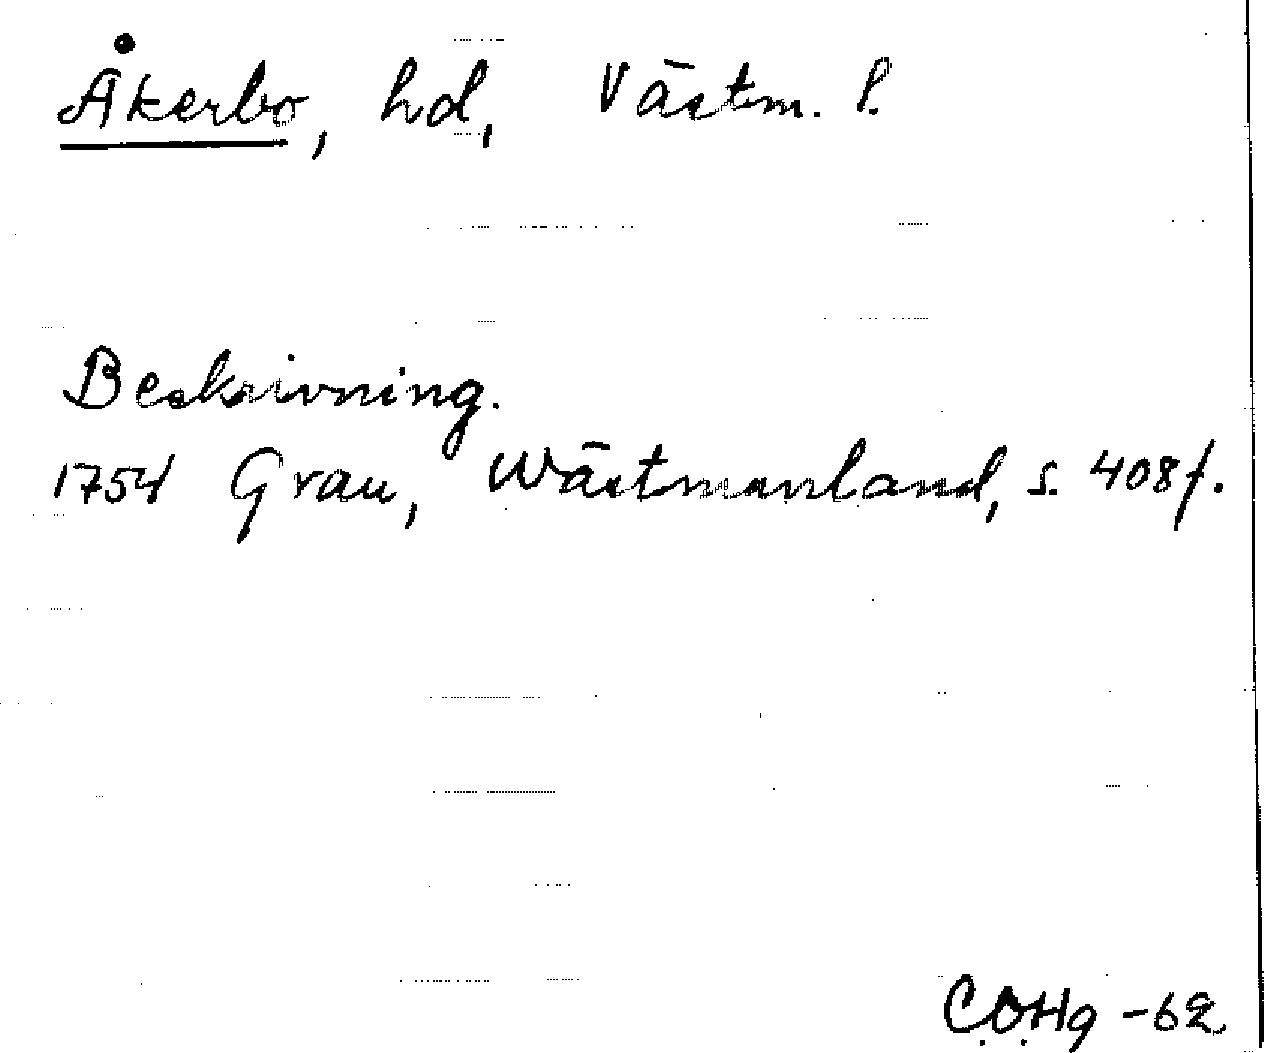 Åkerbo, hd, Västm. l.
Beskrivning.
1754 Grau, Wästmanland, s. 408 f.
C.O.Hg -62